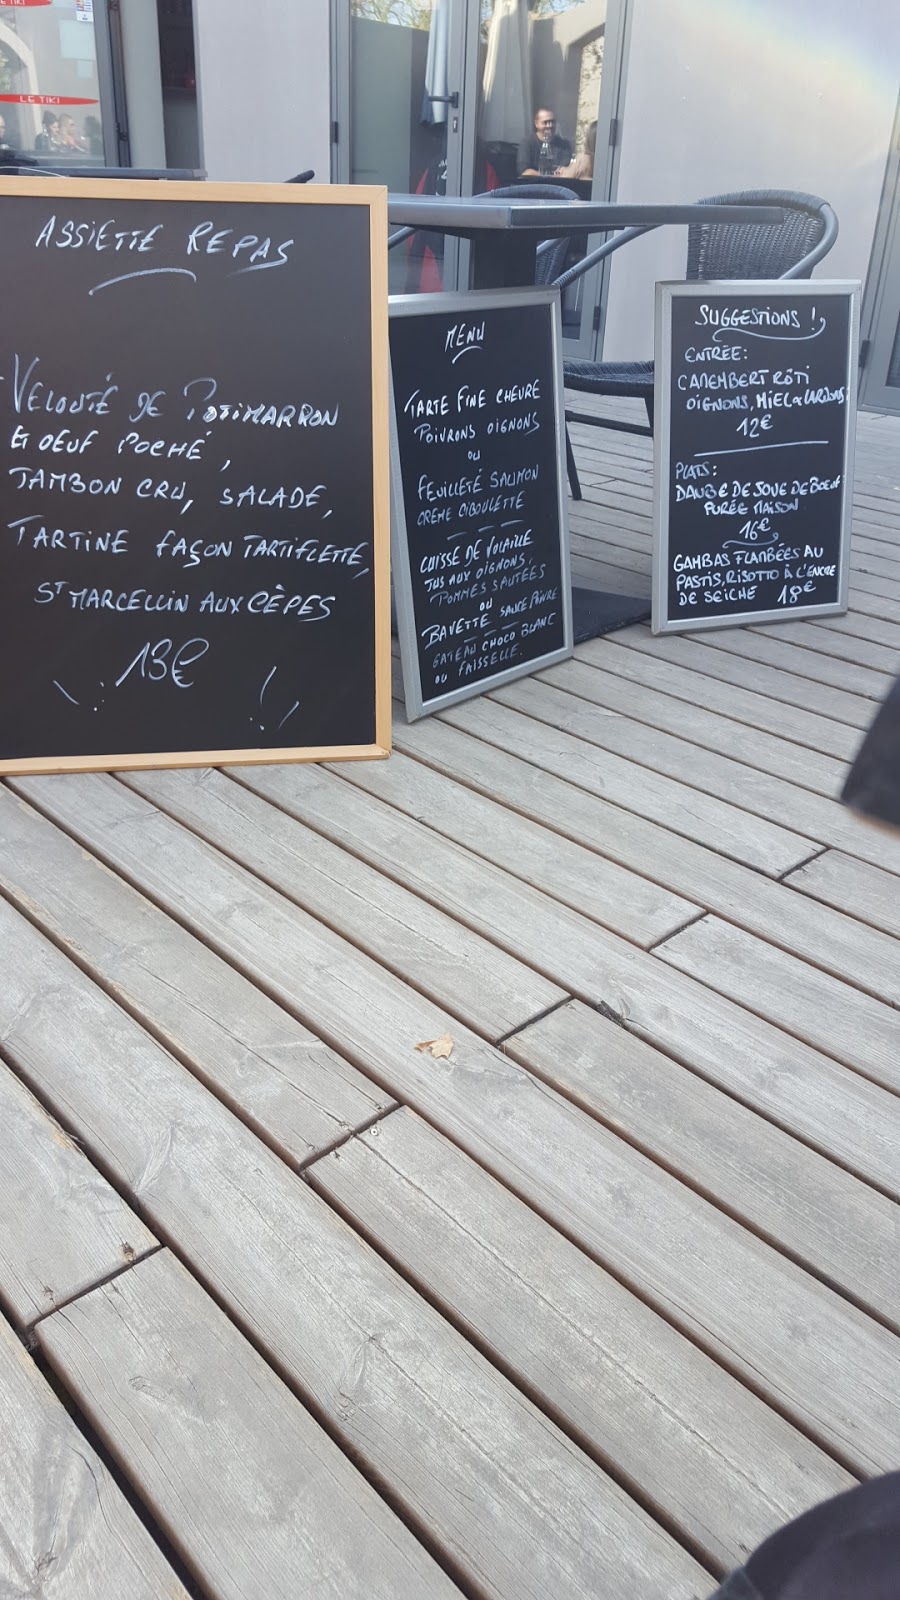 LE TIKI
LE TIKI
ASSIETTE REPAS
VELOUTÉ DE POTIMARRON
& OEUF POCHÉ,
JAMBON CRU, SALADE,
TARTINE FAÇON TARTIFLETTE,
ST MARCELLIN AUX CÈPES
13€
MENU
TARTE FINE CHEVRE
POIVRONS OIGNONS
OU
FEUILLETÉ SAUMON
CRÈME CIBOULETTE
CUISSE DE VOLAILLE
JUS AUX OIGNONS,
POMMES SAUTÉES
OU
BAVETTE SAUCE POIVRE
GATEAU CHOCO BLANC
OU FAISSELLE.
SUGGESTIONS !
ENTRÉE:
CAMEMBERT RÔTI
OIGNONS, MIEL & LARDONS
12€
PLATS:
DAUBE DE JOUE DE BOEUF
PURÉE MAISON
16€
GAMBAS FLAMBÉES AU
PASTIS, RISOTTO À L'ENCRE
DE SEICHE 18€